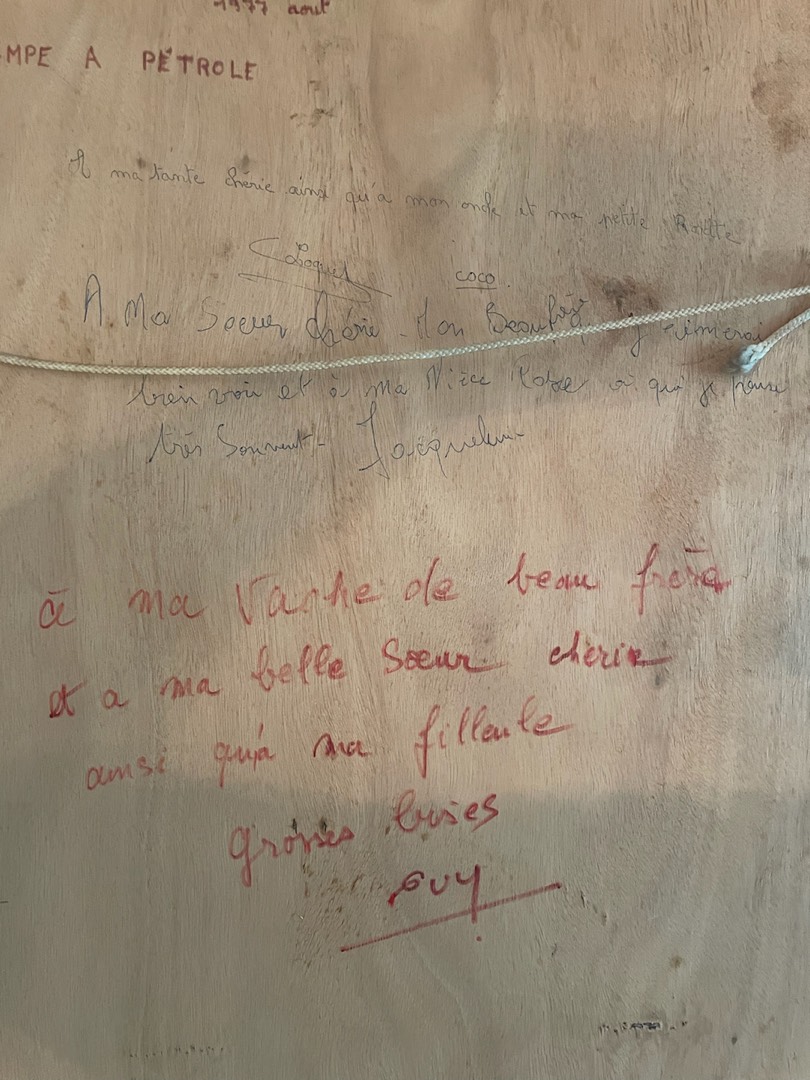 1977 aout
MPE A PÉTROLE
A ma tante chérie ainsi qu'a mon oncle et ma petite
coco.
A Ma Soeur chérie - Mon Beaufrère j'aimerai
bien voir et à Ma Nièce à qui je pense
très Souvent -
à ma Vache de beau frère
et a ma belle Sœur chérie
ainsi qu'a ma filleule
grosses bises
GUY